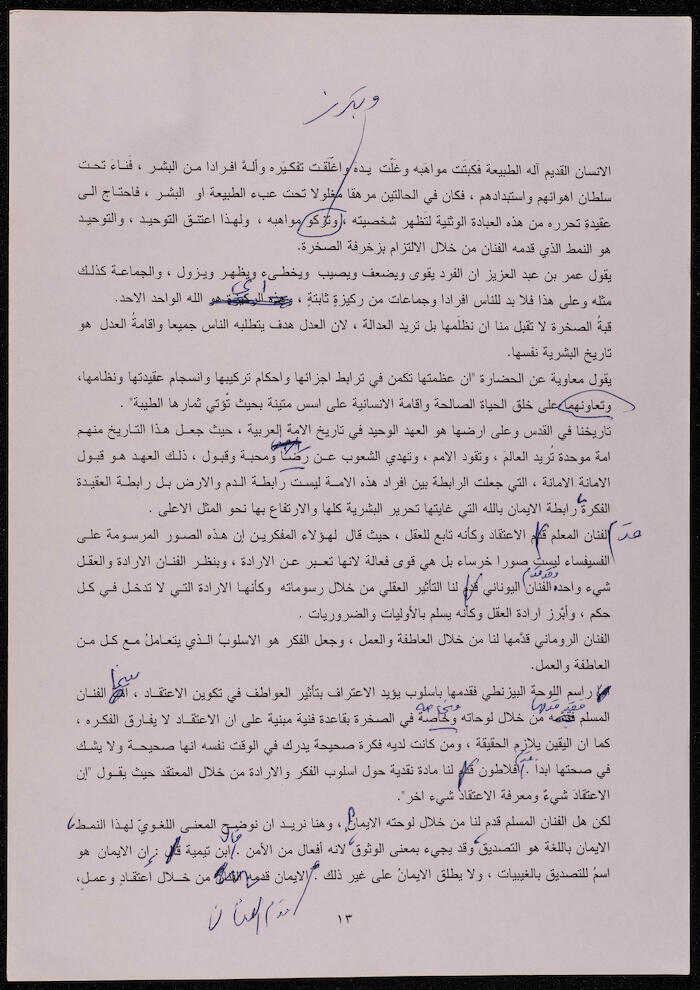 وتبرز
الانسان القديم آله الطبيعة فكبتَت مواهَبه وغَلّت يده واغّلَقت تفكيَره وألهَ افرادا من البشر ، فَناءَ تحت
سلطان اهوائهم واستبدادهم ، فكان في الحالتين مرهقا مغلولا تحت عبء الطبيعة او البشر ، فاحتاج الى
عقيدة تحرره من هذه العبادة الوثنية لتَظهر شخصيته ، وتزكو مواهبه ، ولهذا اعتنق التوحيد ، والتوحيد
هو النمط الذي قدمه الفنان من خلال الالتزام بزخرفة الصخرة.
يقول عمر بن عبد العزيز ان الفرد يقوى ويضعف ويصيب ويخطىء ويظهر ويزول ، والجماعة كذلك
مثله وعلى هذا فلا بد للناس افرادا وجماعات من ركيزةٍ ثابتةٍ ، وهذه الركيزة هو الله الواحد الاحد.
قبةُ الصخرة لا تقبل منا ان نظلَمها بل تريد العدالة ، لان العدل هدف يتطلبه الناس جميعا واقامةُ العدل هو
تاريخ البشرية نفسها.
يقول معاوية عن الحضارة "ان عظمتها تكمن في ترابط اجزائها واحكام تركيبها وانسجام عقيدتها ونظامها،
وتعاونهما على خلق الحياة الصالحة واقامة الانسانية على اسس متينة بحيث تُؤتي ثمارها الطيبة" .
تاريخنا في القدس وعلى ارضها هو العهد الوحيد في تاريخ الامة العربية ، حيث جعل هذا التاريخ منهم
امة موحدة تُريد العالمَ ، وتقود الامم ، وتهدي الشعوب عن رضا ومحبة وقبول ، ذلك العهد هو قبول
الامانة الامانة ، التي جعلت الرابطة بين افراد هذه الامة ليست رابطة الدم والارض بل رابطة العقيدة
الفكرة رابطة الايمان بالله التي غايتها تحرير البشرية كلها والارتفاع بها نحو المثل الاعلى .
الفنان المعلم قدم الاعتقاد وكأنه تابع للعقل ، حيث قال لهؤلاء المفكرين إن هذه الصور المرسومة على
الفسيفساء ليست صورا خرساء بل هي قوى فعالة لانها تعبر عن الارادة ، وبنظر الفنان الارادة والعقل
شيء واحد الفنان اليوناني قدم لنا التأثير العقلي من خلال رسوماته وكأنها الارادة التي لا تدخل في كل
حكم ، وأبْرز ارادة العقل وكأنه يسلم بالأوليات والضروريات .
الفنان الروماني قدّمها لنا من خلال العاطفة والعمل ، وجعل الفكر هو الاسلوبُ الذي يتعاملُ مع كل من
العاطفة والعمل.
راسم اللوحة البيزنطي فقدمها باسلوب يؤيد الاعتراف بتأثير العواطف في تكوين الاعتقاد ، الفنان
المسلم من خلال لوحاته وخاصة في الصخرة بقاعدة فنية مبنية على ان الاعتقاد لا يفارق الفكره ،
كما ان اليقين يلازم الحقيقة ، ومن كانت لديه فكرة صحيحة يدرك في الوقت نفسه انها صحيحة ولا يشك
في صحتها ابدا . أفلاطون قدم لنا مادة نقدية حول اسلوب الفكر والارادة من خلال المعتقد حيث يقول "إن
الاعتقادَ شيءٌ ومعرفة الاعتقاد شيء اخر".
لكن هل الفنان المسلم قدم لنا من خلال لوحته الايمان ، وهنا نريد ان نوضح المعنى اللغويّ لهذا النمط
الايمان باللغة هو التصديق وقد يجيء بمعنى الوثوق لانه أفعال من الأمن . ابن تيمية قال : إن الايمان هو
اسمُ للتصديق بالغيبيات ، ولا يطلق الايمانُ على غير ذلك . الإيمان قدمه الفنان من خلال أعتقادٍ وعملٍ،
قدم الفنان
١٣